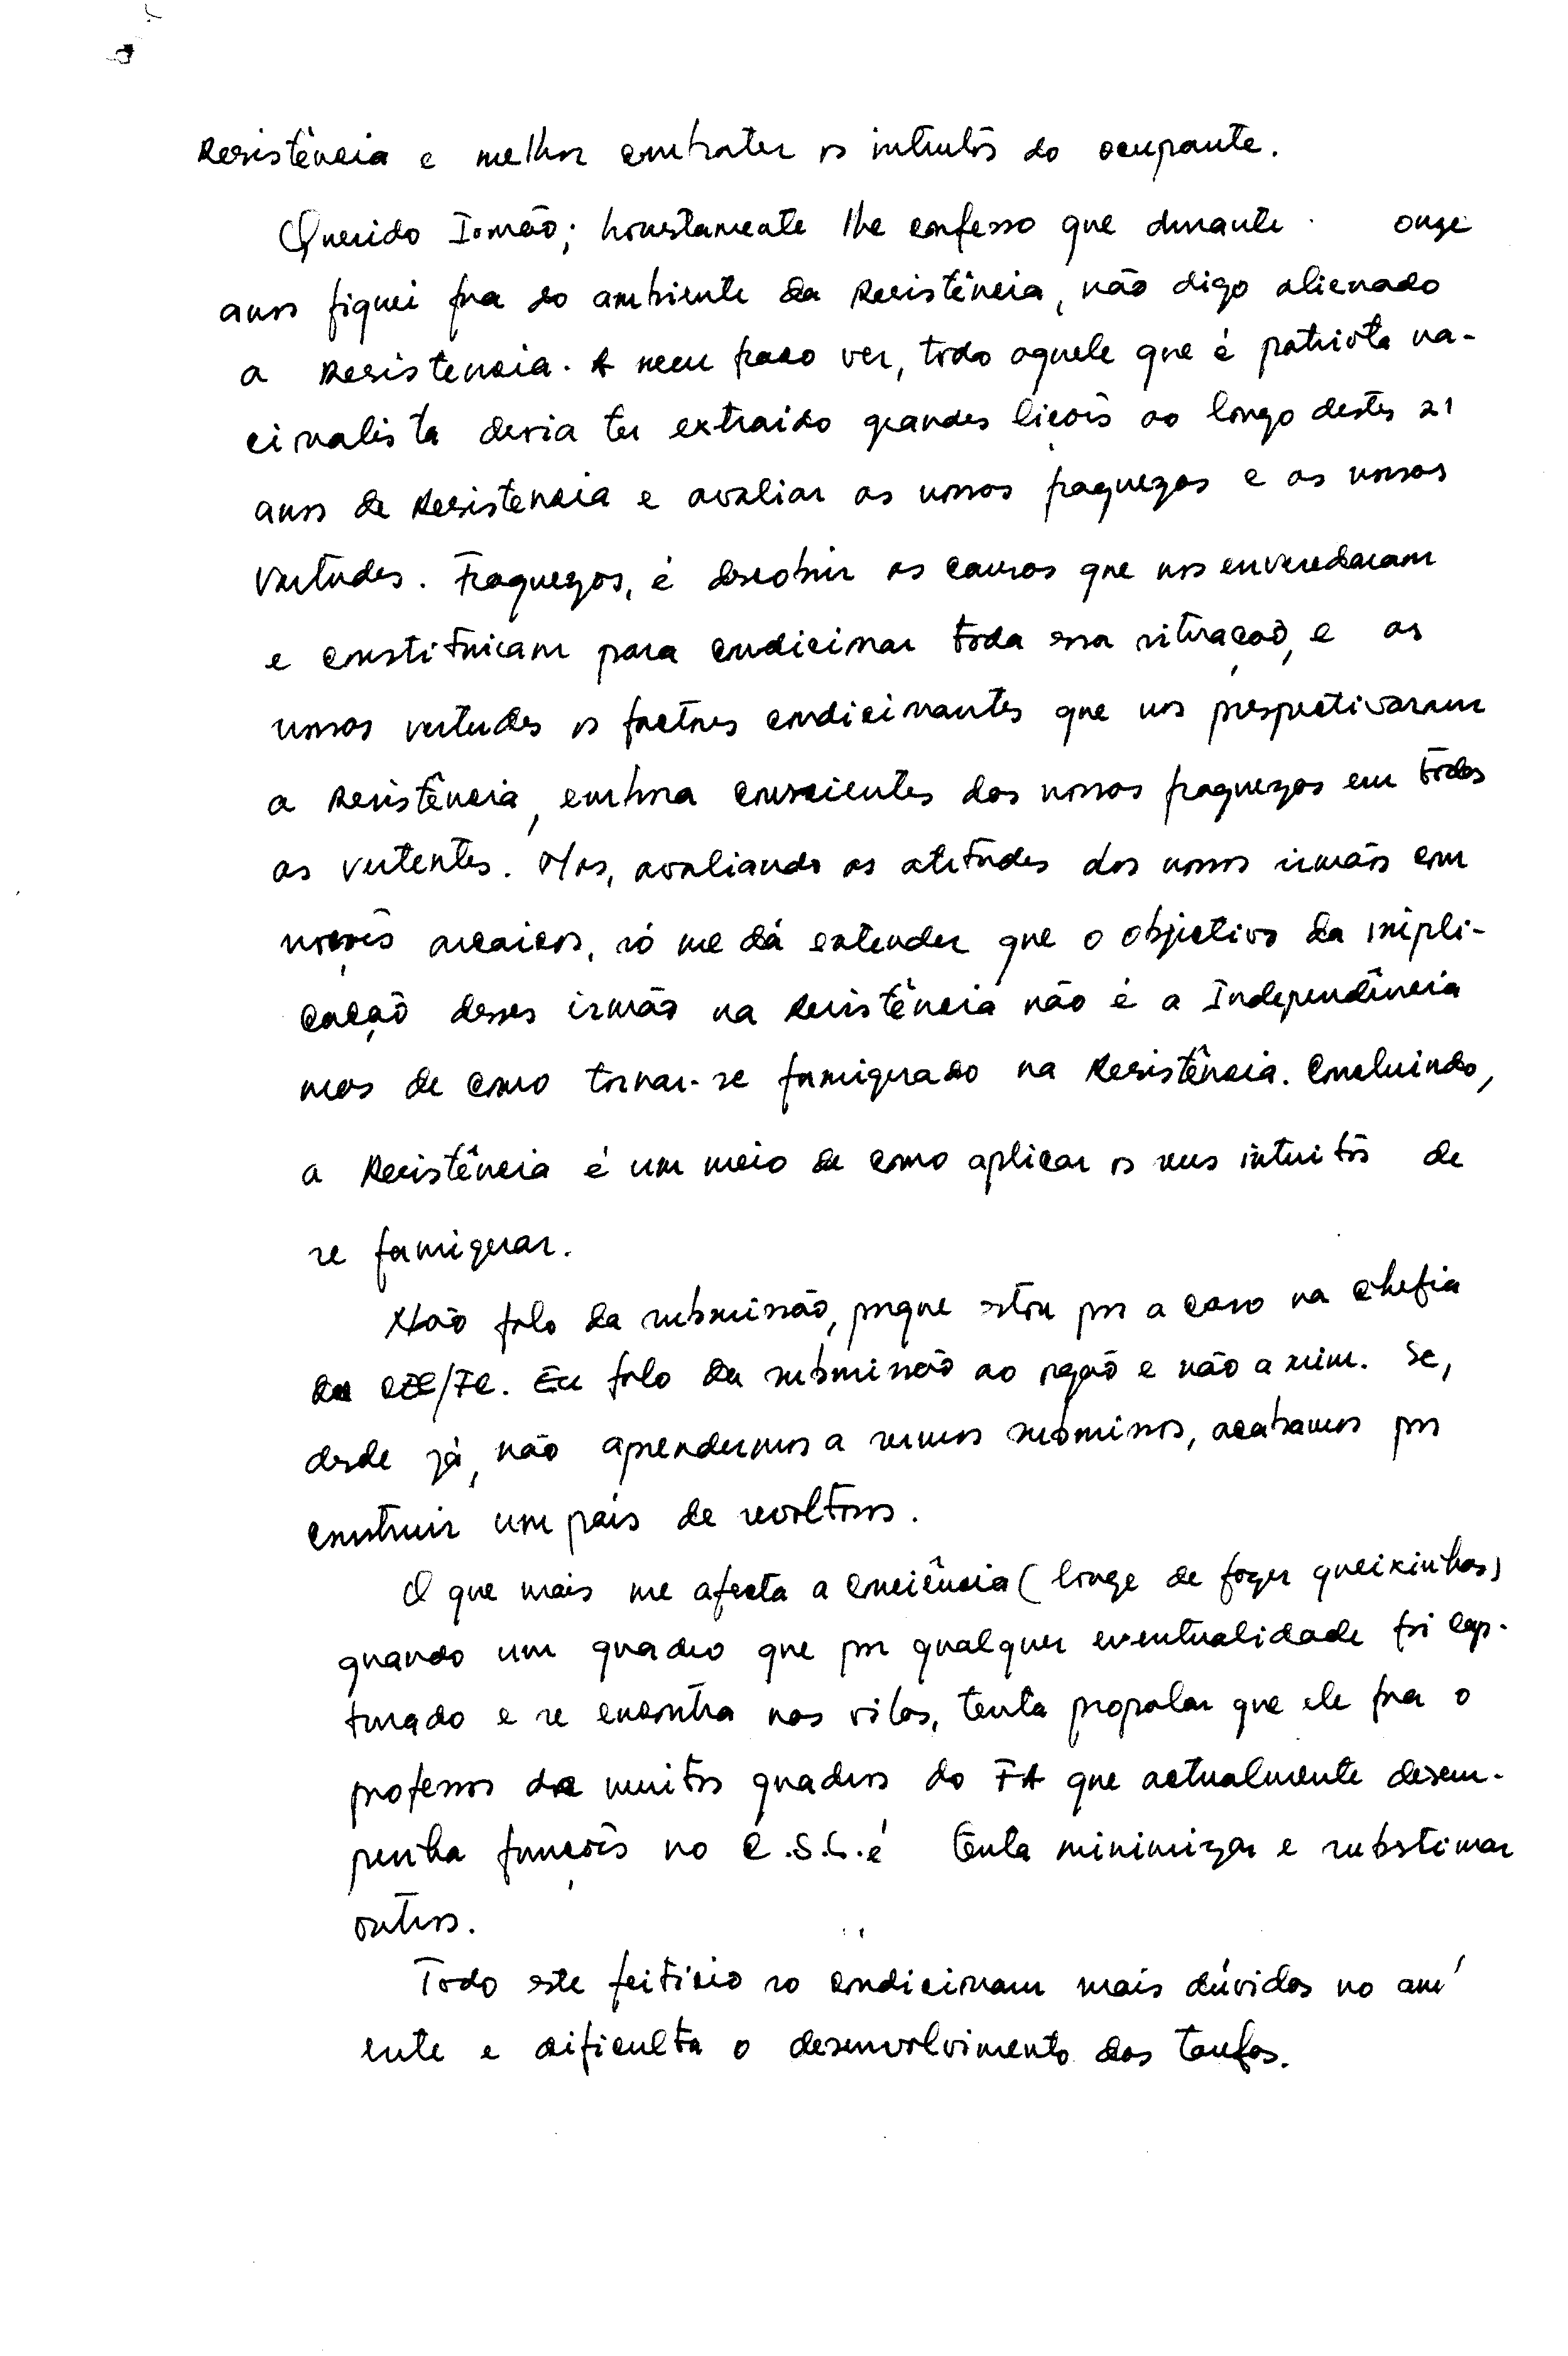 Resistência e melhor combater os intuitos do ocupante.
Querido Irmão; honestamente lhe confesso que durante onze
anos fiquei fora do ambiente da Resistência, não digo alienado
a Resistencia. A meu fraco ver, todo aquele que é patriota na-
cionalista devia ter extraido grandes lições ao longo destes 21
anos de Resistencia e avaliar as nossas fraquezas e as nossas
virtudes. Fraquezas, é descobrir as causas que nos enveredaram
e constituiram para condicionar toda essa situação, e as
nossas virtudes os factores condicionantes que nos prespectivaram
a Resistência, embora conscientes das nossas fraquezas em todas
as vertentes. Mas, avaliando as atitudes dos nossos irmãos com
noções arcaicos, só me dá entender que o objectivo da impli-
cação desses irmão na Resistência não é a Independência
mas de como tornar-se famigerado na Resistência. Concluindo,
a Resistência é um meio de como aplicar os seus intuitos de
se famigerar.
Não falo da submissão, porque estou por a caso na chefia
da CEE/FC. Eu falo da submissão ao orgão e não a mim. Se,
desde já, não aprendermos a sermos submissos, acabamos por
construir um pais de revoltosos.
O que mais me afecta a conciência (longe de fazer queixinhas)
quando um quadro que por qualquer eventualidade foi cap-
turado e se encontra nas vilas, tenta propalar que ele fora o
professor de muitos quadros do FA que actualmente desem-
penha funções no C.S.L. é tenta minimizar e substimar
outros.
Todo este feiticio so condicionam mais dúvidas no am
ente e dificulta o desenvolvimento das tarefas.